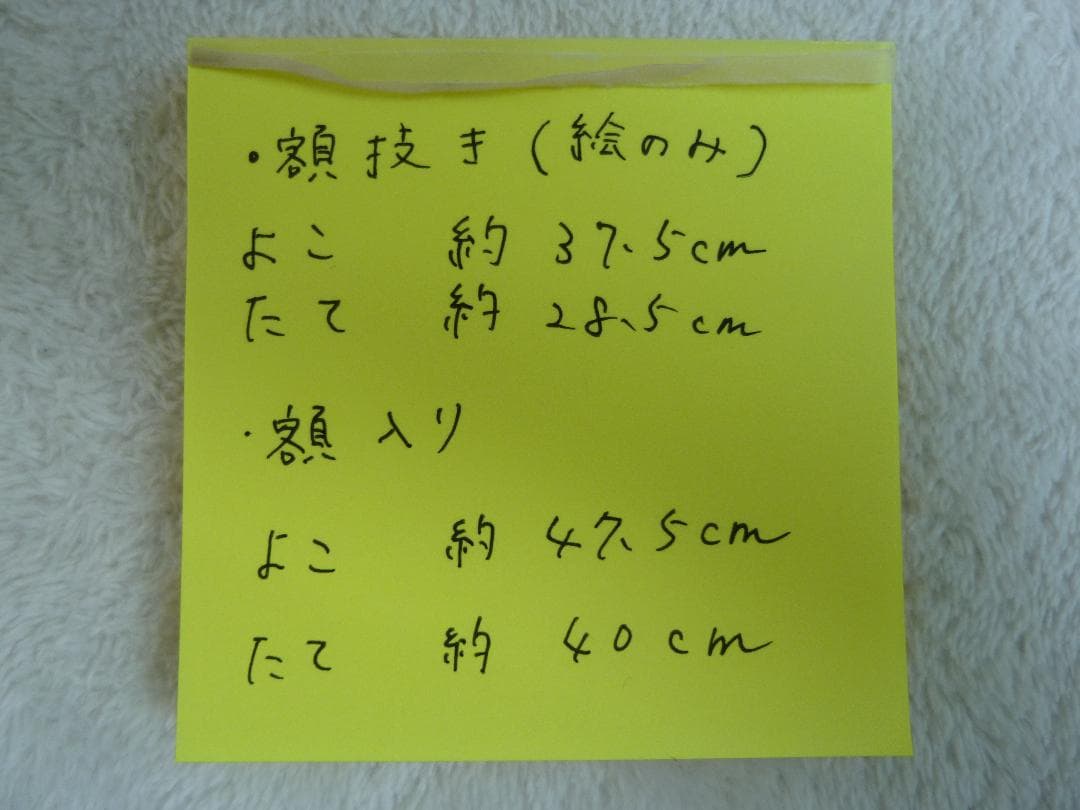 ・額抜き(絵のみ)
よこ 約 37.5cm
たて 約 28.5cm
・額入り
よこ 約 47.5cm
たて 約 40cm